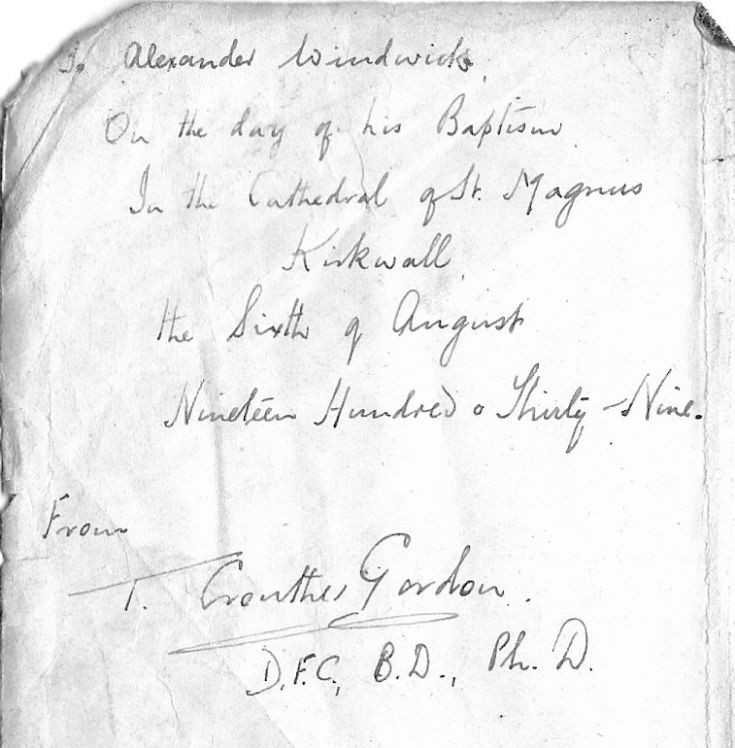 To Alexander Windwick.
On the day of his Baptism
In the Cathedral of St. Magnus
Kirkwall
the Sixth of August
Nineteen Hundred & Thirty-Nine.
From
T. Crouther Gordon.
D.F.C., B.D., Ph.D.